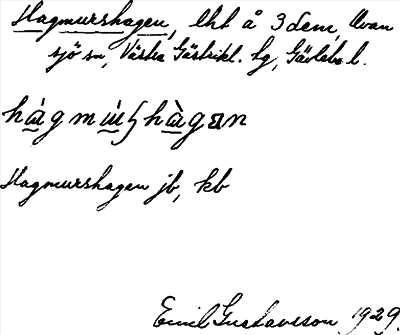 Hagmurshagen, lht å 3 dem, Ovan
sjö sn, Västra Gästrikl. tg, Gävlebs l.
Hagmurshagen jb, kb
Emil Gustavsson 1929.